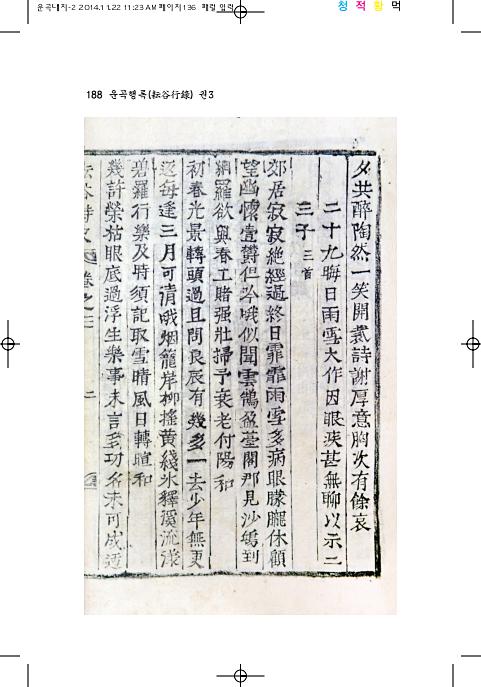 운곡내지-2 2014.11.22 11:23 AM 페이지196 매컬 입력
청 적 황 먹
188 운곡행록(耘谷行錄) 권3
夕共醉陶然一笑開裁詩謝厚意胸次有餘哀
二十九晦日雨雪大作因眼疾甚無聊以示二
三子 三首
郊居寂寂絶經過終日霏霏雨雪多病眼朦朧休顧
望幽懷壹鬱但吟哦似聞雲鶴盈臺閣那見沙鳧到
網羅欲與春工賭强壯掃予衰老付陽和
初春光景轉頭過且問良辰有幾多一去少年無更
返每逢三月可淸哦烟籠岸柳搖黃綫氷釋溪流漾
碧羅行樂及時須記取雪晴風日轉暄和
幾許榮枯眼底過浮生樂事未言多功名未可成
卷之三
二